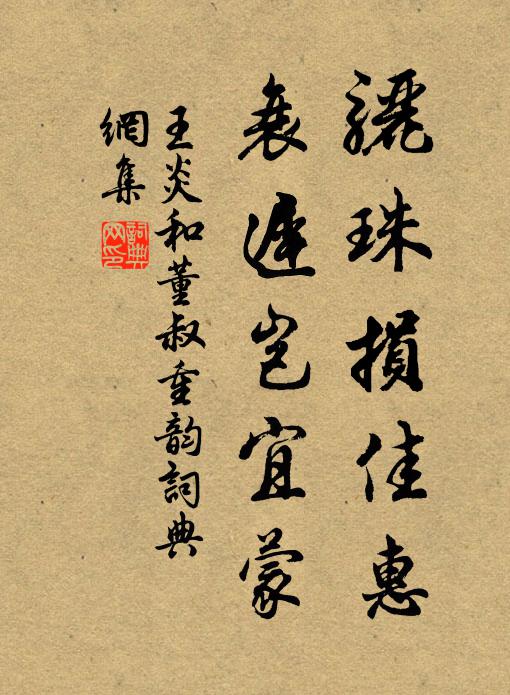 驪珠損佳惠
衰遲豈宜蒙
王炎和董叔重韵詞典
網集
詞典網印